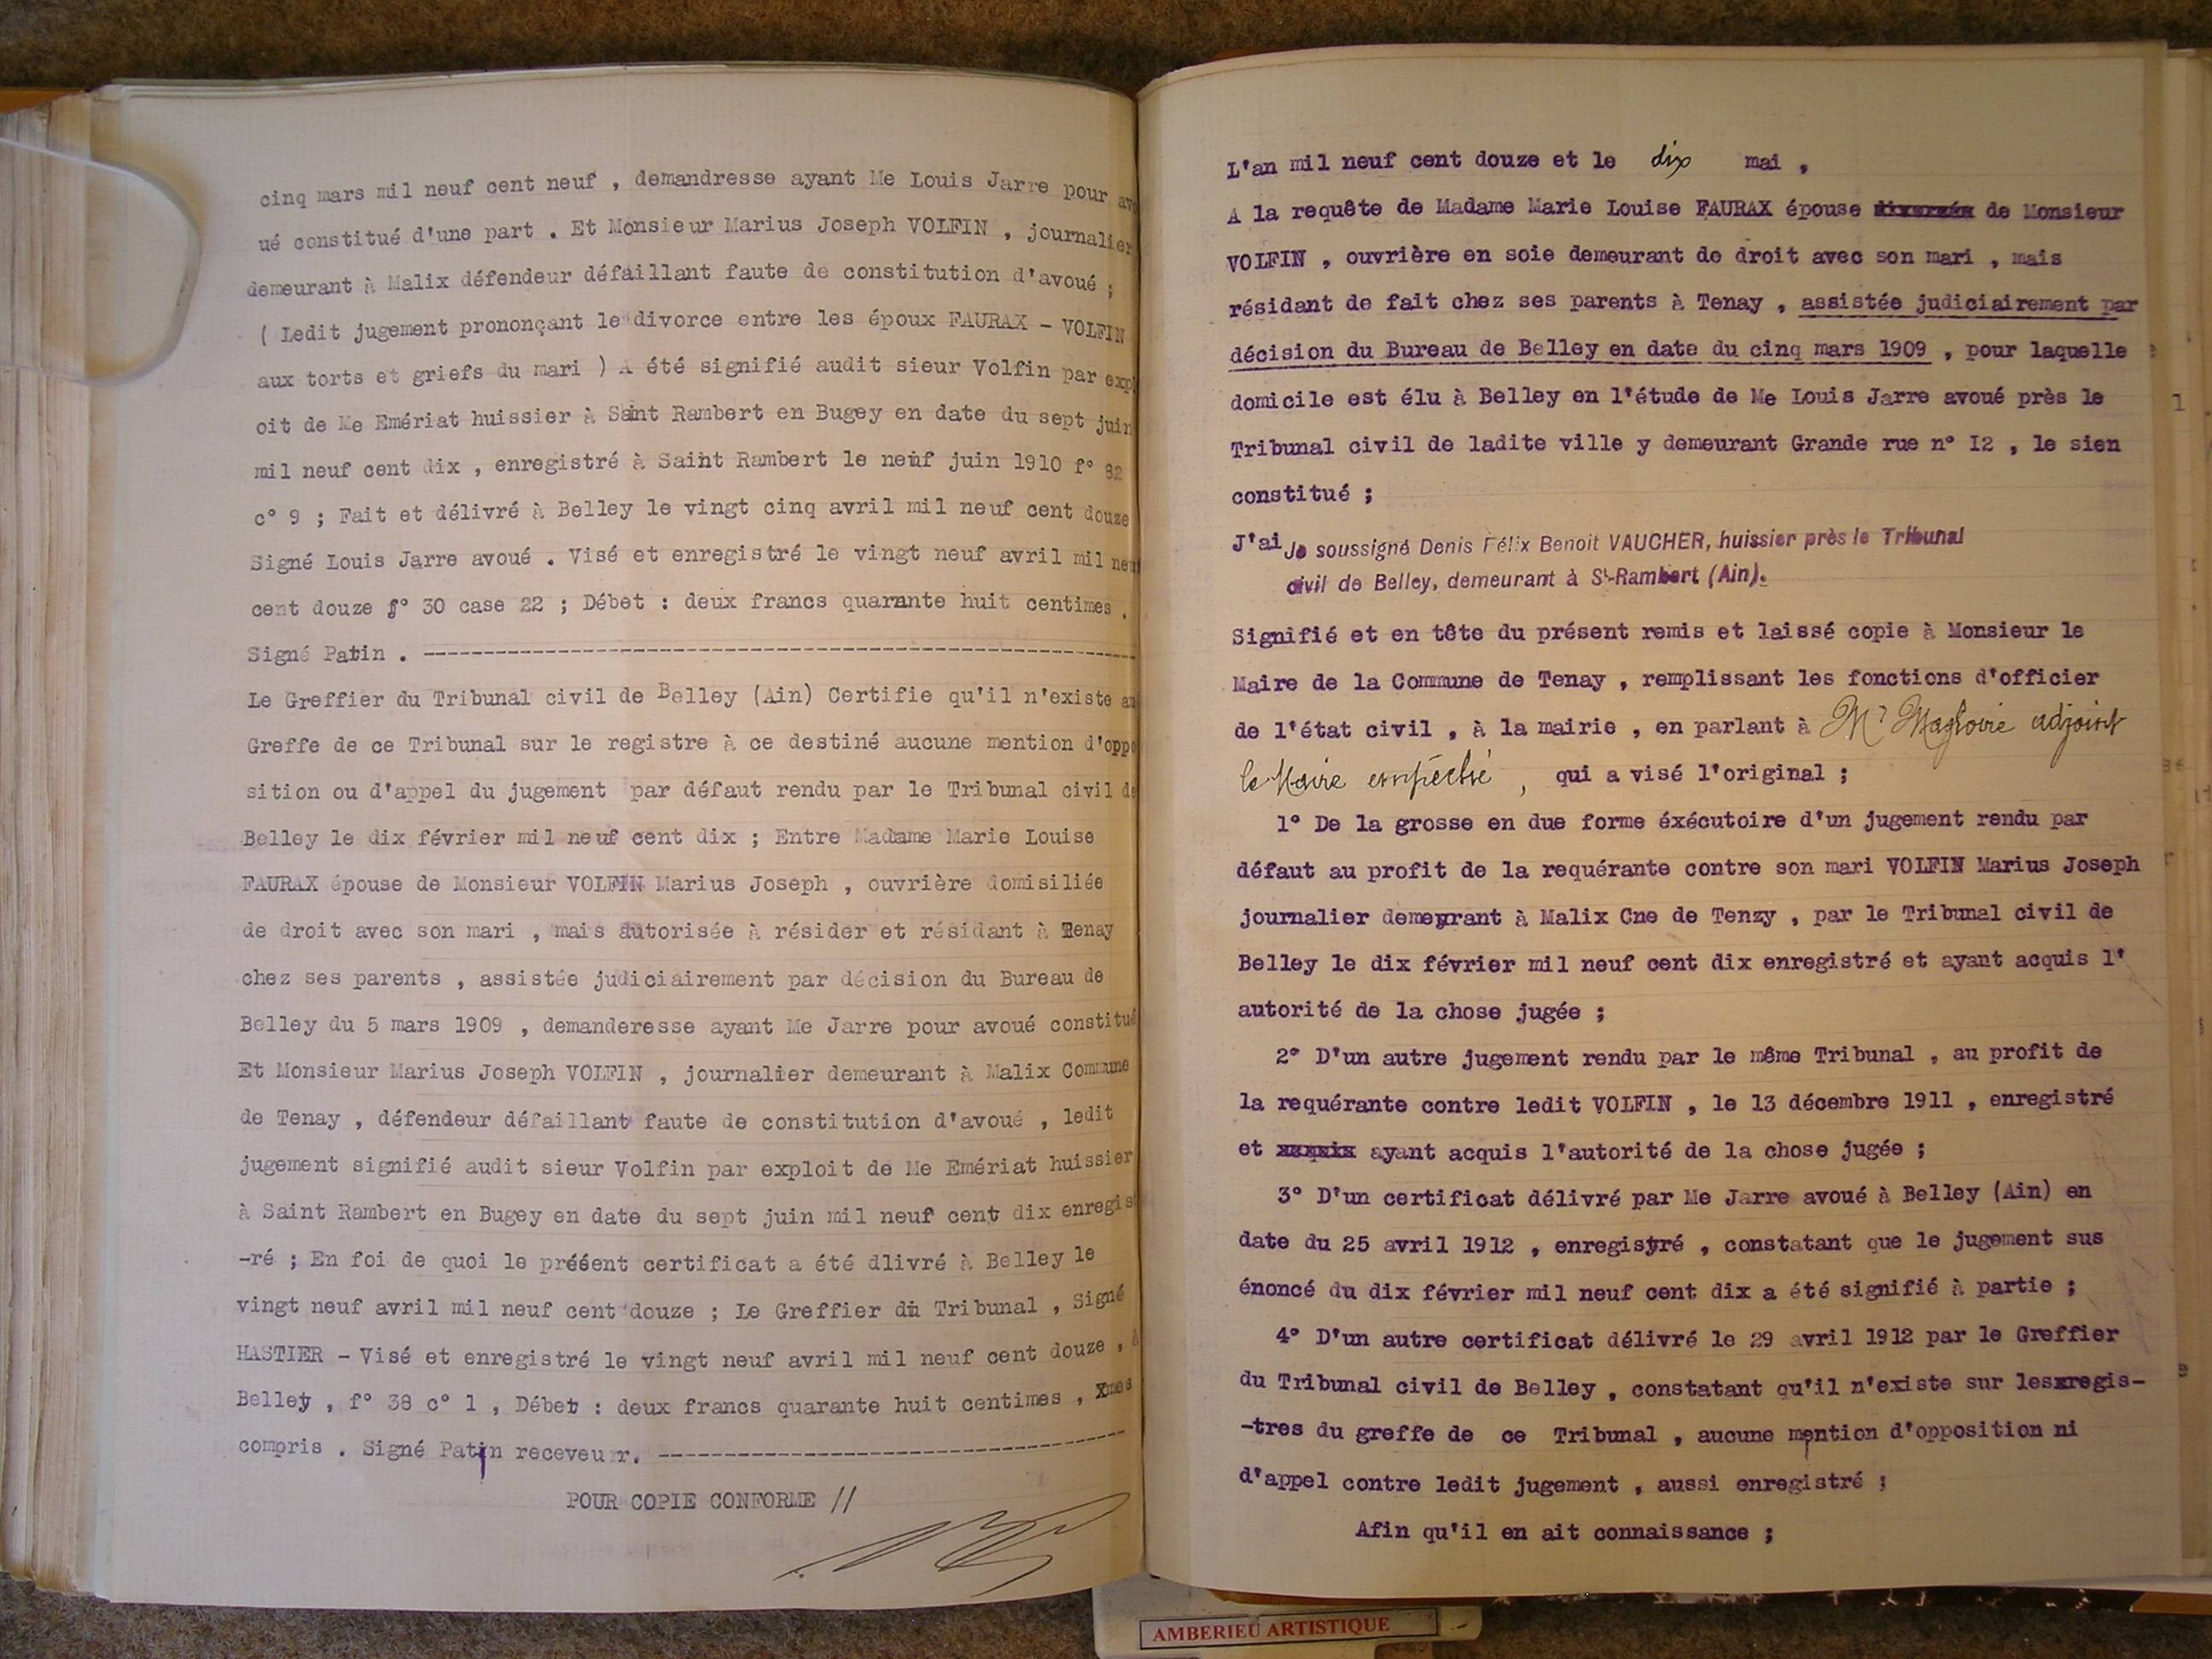 cinq mars mil neuf cent neuf , demandresse ayant Me Louis Jarre pour avo
ué constitué d'une part . Et Monsieur Marius Joseph VOLFIN , journalier
demeurant à Malix défendeur défaillant faute de constitution d'avoué ;
( Ledit jugement prononçant le divorce entre les époux FAURAX - VOLFIN
aux torts et griefs du mari ) A été signifié audit sieur Volfin par expl
oit de Me Emériat huissier à Saint Rambert en Bugey en date du sept juin
mil neuf cent dix , enregistré à Saint Rambert le neuf juin 1910 f° 82
c° 9 ; Fait et délivré à Belley le vingt cinq avril mil neuf cent douze
Signé Louis Jarre avoué . Visé et enregistré le vingt neuf avril mil neuf
cent douze f° 30 case 22 ; Débet : deux francs quarante huit centimes .
Signé Patin . ------------------------------------------------
Le Greffier du Tribunal civil de Belley (Ain) Certifie qu'il n'existe au
Greffe de ce Tribunal sur le registre à ce destiné aucune mention d'oppo
sition ou d'appel du jugement par défaut rendu par le Tribunal civil de
Belley le dix février mil neuf cent dix ; Entre Madame Marie Louise
FAURAX épouse de Monsieur VOLFIN Marius Joseph , ouvrière domisiliée
de droit avec son mari , mais autorisée à résider et résidant à Tenay
chez ses parents , assistée judiciairement par décision du Bureau de
Belley du 5 mars 1909 , demanderesse ayant Me Jarre pour avoué constitué
Et Monsieur Marius Joseph VOLFIN , journalier demeurant à Malix Commune
de Tenay , défendeur défaillant faute de constitution d'avoué , ledit
jugement signifié audit sieur Volfin par exploit de Me Emériat huissier
à Saint Rambert en Bugey en date du sept juin mil neuf cent dix enregist
-ré ; En foi de quoi le présent certificat a été dlivré à Belley le
vingt neuf avril mil neuf cent douze ; Le Greffier du Tribunal , Signé
HASTIER - Visé et enregistré le vingt neuf avril mil neuf cent douze , à
Belley , f° 38 c° 1 , Débet : deux francs quarante huit centimes , Xmes
compris . Signé Patin receveur. --------------------------------
POUR COPIE CONFORME //
L'an mil neuf cent douze et le dix mai ,
A la requête de Madame Marie Louise FAURAX épouse de Monsieur
VOLFIN , ouvrière en soie demeurant de droit avec son mari , mais
résidant de fait chez ses parents à Tenay , assistée judiciairement par
décision du Bureau de Belley en date du cinq mars 1909 , pour laquelle
domicile est élu à Belley en l'étude de Me Louis Jarre avoué près le
Tribunal civil de ladite ville y demeurant Grande rue n° I2 , le sien
constitué ;
J'ai Je soussigné Denis Félix Benoit VAUCHER, huissier près le Tribunal
civil de Belley, demeurant à St-Rambert (Ain).
Signifié et en tête du présent remis et laissé copie à Monsieur le
Maire de la Commune de Tenay , remplissant les fonctions d'officier
de l'état civil , à la mairie , en parlant à Mr adjoint
le Maire empêché , qui a visé l'original ;
1° De la grosse en due forme éxécutoire d'un jugement rendu par
défaut au profit de la requérante contre son mari VOLFIN Marius Joseph
journalier demeurant à Malix Cne de Tenzy , par le Tribunal civil de
Belley le dix février mil neuf cent dix enregistré et ayant acquis l'
autorité de la chose jugée ;
2° D'un autre jugement rendu par le même Tribunal , au profit de
la requérante contre ledit VOLFIN , le 13 décembre 1911 , enregistré
et ayant acquis l'autorité de la chose jugée ;
3° D'un certificat délivré par Me Jarre avoué à Belley (Ain) en
date du 25 avril 1912 , enregistré , constatant que le jugement sus
énoncé du dix février mil neuf cent dix a été signifié à partie ;
4° D'un autre certificat délivré le 29 avril 1912 par le Greffier
du Tribunal civil de Belley , constatant qu'il n'existe sur les regis-
-tres du greffe de ce Tribunal , aucune mention d'opposition ni
d'appel contre ledit jugement , aussi enregistré ;
Afin qu'il en ait connaissance ;
AMBERIEU ARTISTIQUE